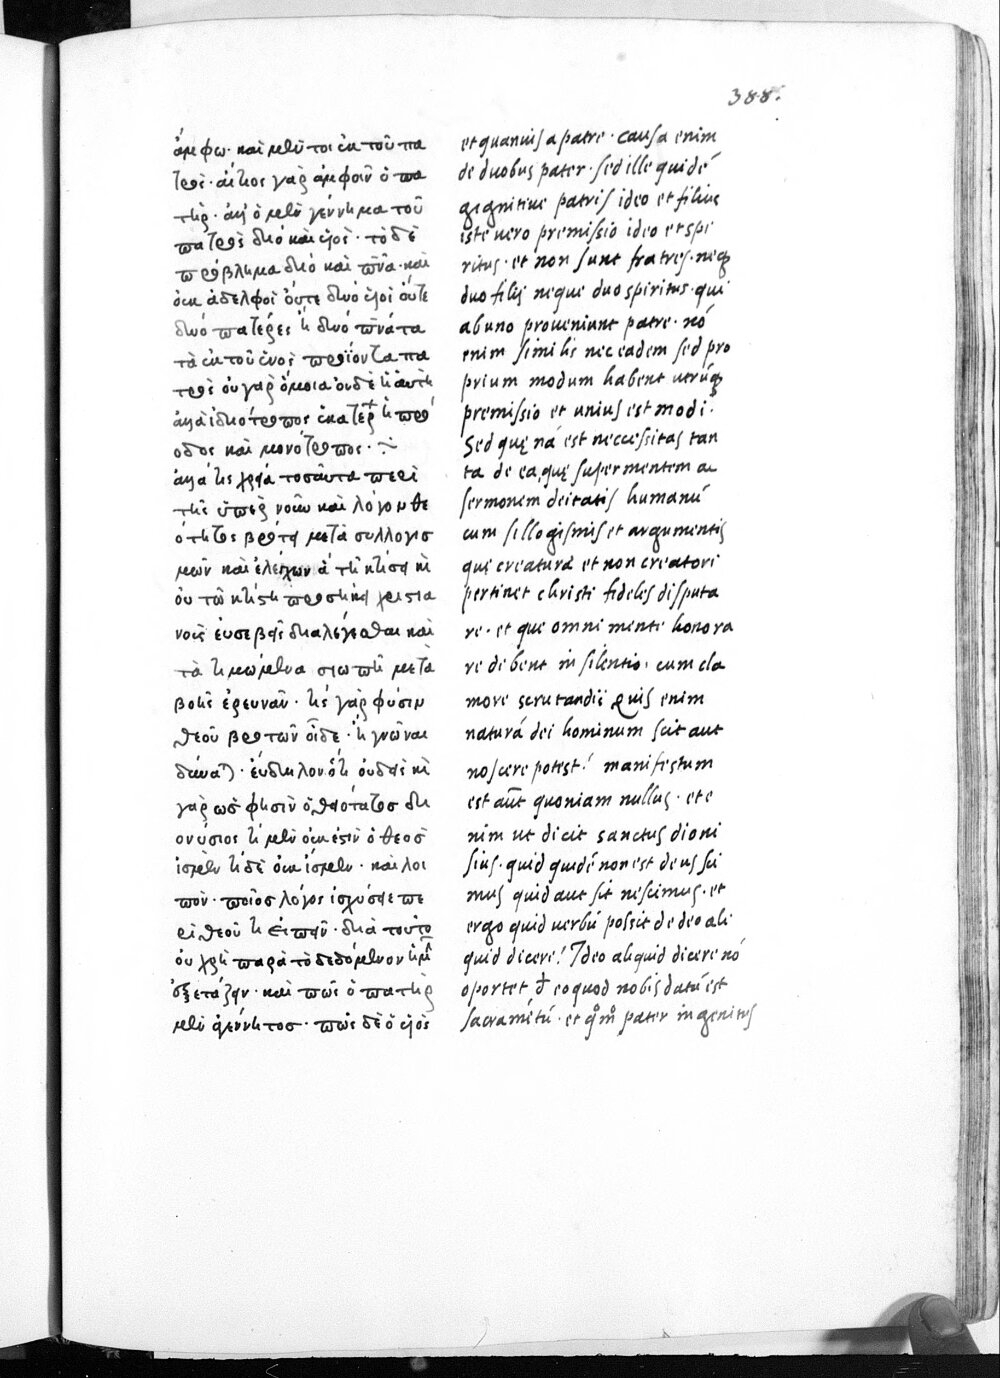 388.
ἄμφω· καὶ μὲν τοι ἐκ τοῦ πα
τρὸς· αἴτιος γὰρ ἀμφοῖν ὁ πα
τὴρ· ἀλλ' ὁ μὲν γέννημα τοῦ
πατρὸς διὸ καὶ υἱὸς· τὸ δὲ
πρόβλημα διὸ καὶ πν̅α· καὶ
οὐκ ἀδελφοὶ οὔτε δυὸ υἱοὶ οὔτε
δυὸ πατέρες ἢ δυὸ πν̅ατα
τὰ ἐκ τοῦ ἑνὸς προϊόντα πα
τρὸς οὐ γὰρ ὁμοία οὐδὲ ἡ αὐτὴ
ἀλλὰ ἰδιότροπος ἑκατέρ ἡ πρό
οδος καὶ μονότροπος·
ἀλλὰ τίς χρεία τοσαύτα περὶ
τῆς ὑπὲρ νοῦν καὶ λόγον θε
ότητος βροτῷ μετὰ συλλογισ
μῶν καὶ ἐλέγχων ἃ τῇ κτίσει κὶ
οὐ τῷ κτίστῃ προσήκει χριστια
νοῖς εὐσεβῶς διαλέγεσθαι καὶ
τὰ τιμώμενα σιωπῇ μετὰ
βοῆς ἐρευνᾶν· τίς γὰρ φύσιν
θεοῦ βροτῶν οἶδε· ἢ γνῶναι
δύνατ)· εὔδηλον ὅτι οὐδεὶς κὶ
γὰρ ὡς φησὶν ὁ θειότατος διο
ονύσιος τί μὲν οὐκ ἐστὶν ὁ θεος
ἴσμεν τί δὲ οὐκ ἴσμεν· καὶ λοι
πὸν· ποῖος λόγος ἰσχύσειε πε
ρὶ θεοῦ τι εἰπεῖν· διὰ τοῦτο
οὐ χρὴ παρὰ τὸ δεδόμενον ἡμῖ
ἐξετάζειν· καὶ πῶς ὁ πατὴρ
μὲν ἀγέννητος· πῶς δὲ ὁ υἱὸς
et quanuis a patre · causa enim
de duobus pater · sed ille quidē
gignitiue patris ideo et filius
iste uero premissio ideo et spi
ritus · et non sunt fratres · neq
duo filij neque duo spiritus · qui
ab uno proueniunt patre · nō
enim similis nec eadem sed pro
prium modum habent utrūq
premissio et unius est modi ·
Sed quę nā est neccessitas tan
ta de ea quę super mentem ac
sermonem deitatis humanū
cum sillogismis et argumentis
quę creaturæ et non creatori
pertinet christi fidelis disputa
re · et que omni mente honora
re debent in silentio, cum cla
more scrutandi: Quis enim
naturā dei hominum scit aut
noscere potest! manifestum
est aūt quoniam nullus · et e
nim ut dicit sanctus dioni
sius · quid quidē non est deus sci
mus quid aut sit nescimus · et
ergo quid uerbū possit de deo ali
quid dicere! Ideo aliquid dicere nō
oportet eo quod nobis datū est
sacramētū · et pater ingenitus